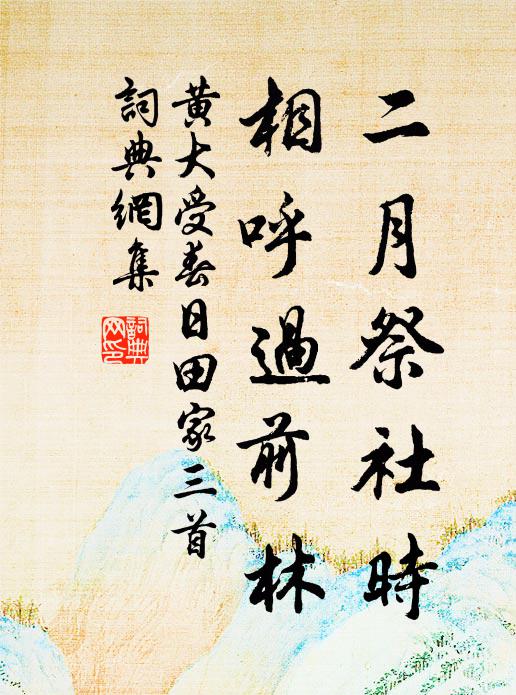 二月祭社時
相呼過前林
黄大受春日田家三首
詞典網集
詞典
网印